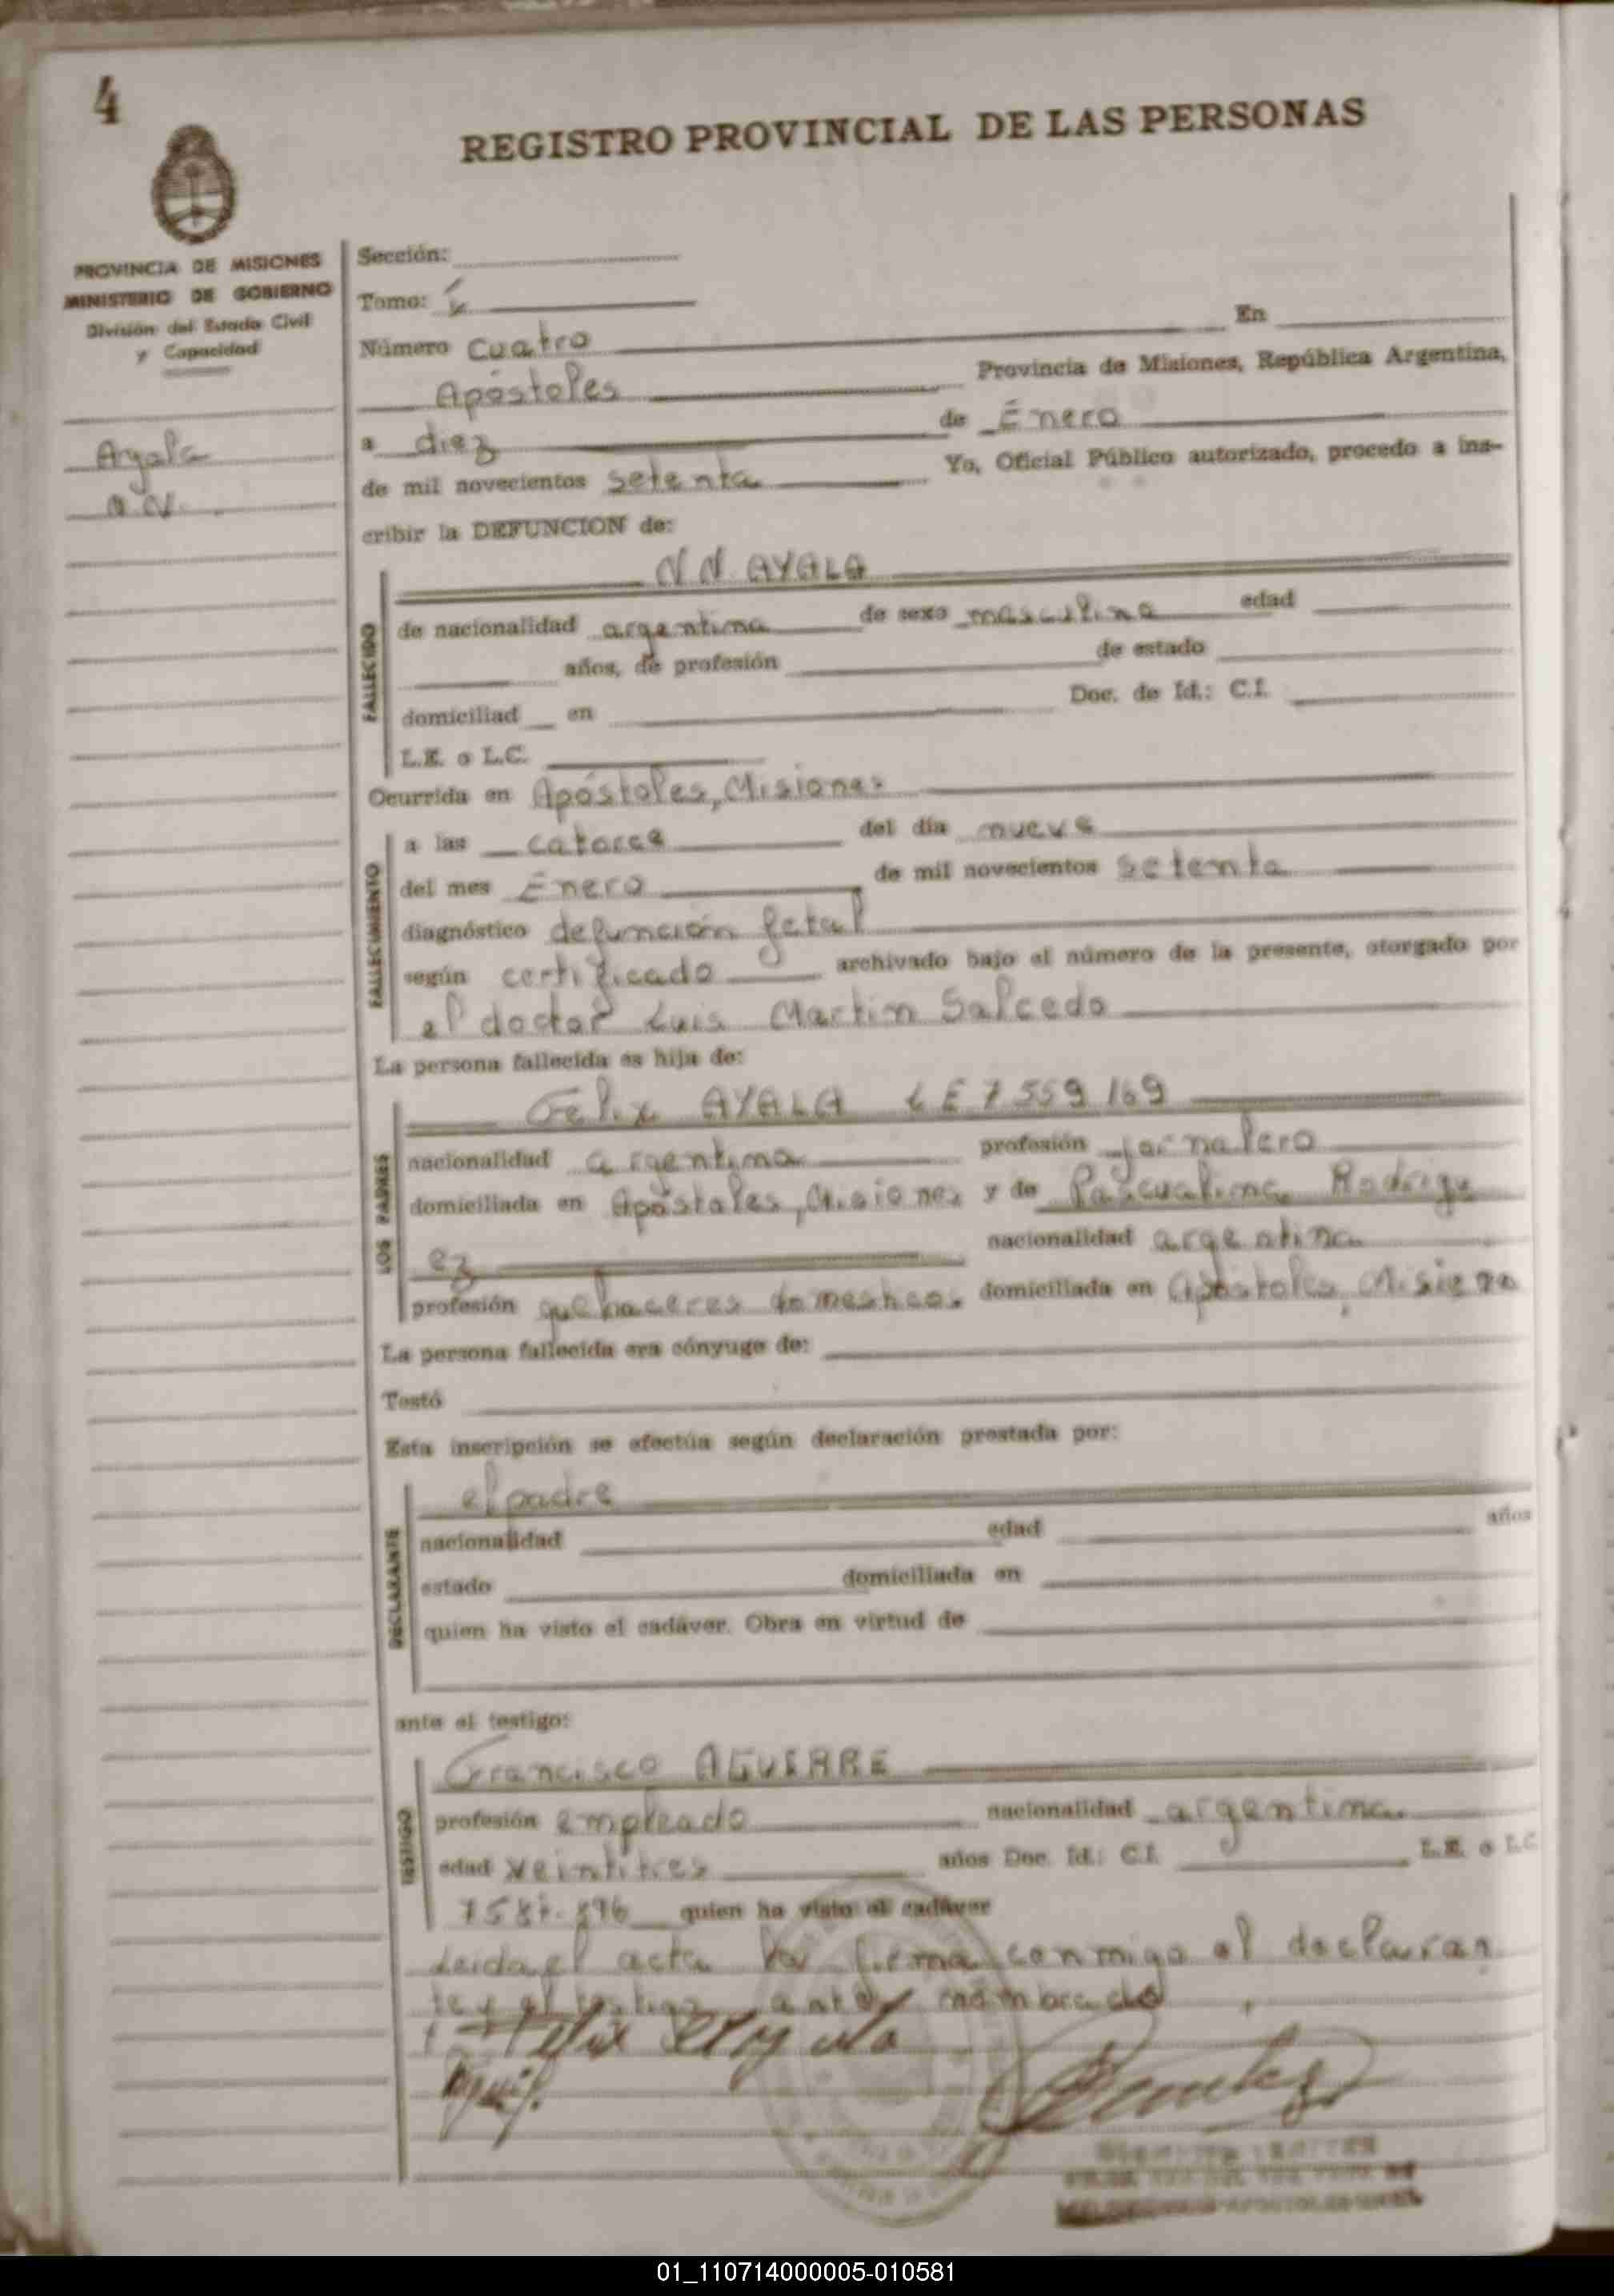 4
REGISTRO PROVINCIAL DE LAS PERSONAS
PROVINCIA DE MISIONES
MINISTERIO DE GOBIERNO
División del Estado Civil
y Capacidad
Ayala
N.N.
Sección:
Tomo:
Número Cuatro En
Apóstoles Provincia de Misiones, República Argentina,
a diez de Enero
de mil novecientos setenta Yo, Oficial Público autorizado, procedo a ins-
cribir la DEFUNCION de:
N N AYALA
FALLECIDO
de nacionalidad argentina de sexo masculino edad
años, de profesión de estado
domiciliad en Doc. de Id.: C.I.
L.E. o L.C.
Ocurrida en Apóstoles, Misiones
FALLECIMIENTO
a las catorce del día nueve
del mes Enero de mil novecientos setenta
diagnóstico defunción fetal
según certificado archivado bajo el número de la presente, otorgado por
el doctor Luis Martin Salcedo
La persona fallecida es hija de:
LOS PADRES
Felix AYALA LE 7 559 169
nacionalidad argentina profesión jornalero
domiciliada en Apóstoles, Misiones y de Pascualina Rodrigu
ez nacionalidad argentina
profesión quehaceres domesticos domiciliada en Apóstoles, Misione
La persona fallecida era cónyuge de:
Testó
Esta inscripción se efectúa según declaración prestada por:
DECLARANTE
el padre
nacionalidad edad años
estado domiciliada en
quien ha visto el cadáver. Obra en virtud de
ante el testigo:
TESTIGO
Francisco AGUERRE
profesión empleado nacionalidad argentina
edad veintitres años Doc. Id.: C.I. L.E. o L.C
quien ha visto el cadáver
Leida el acta la firma conmigo el declaran
te y el testigo antes nombrado
Felix Ayala
01_110714000005-010581